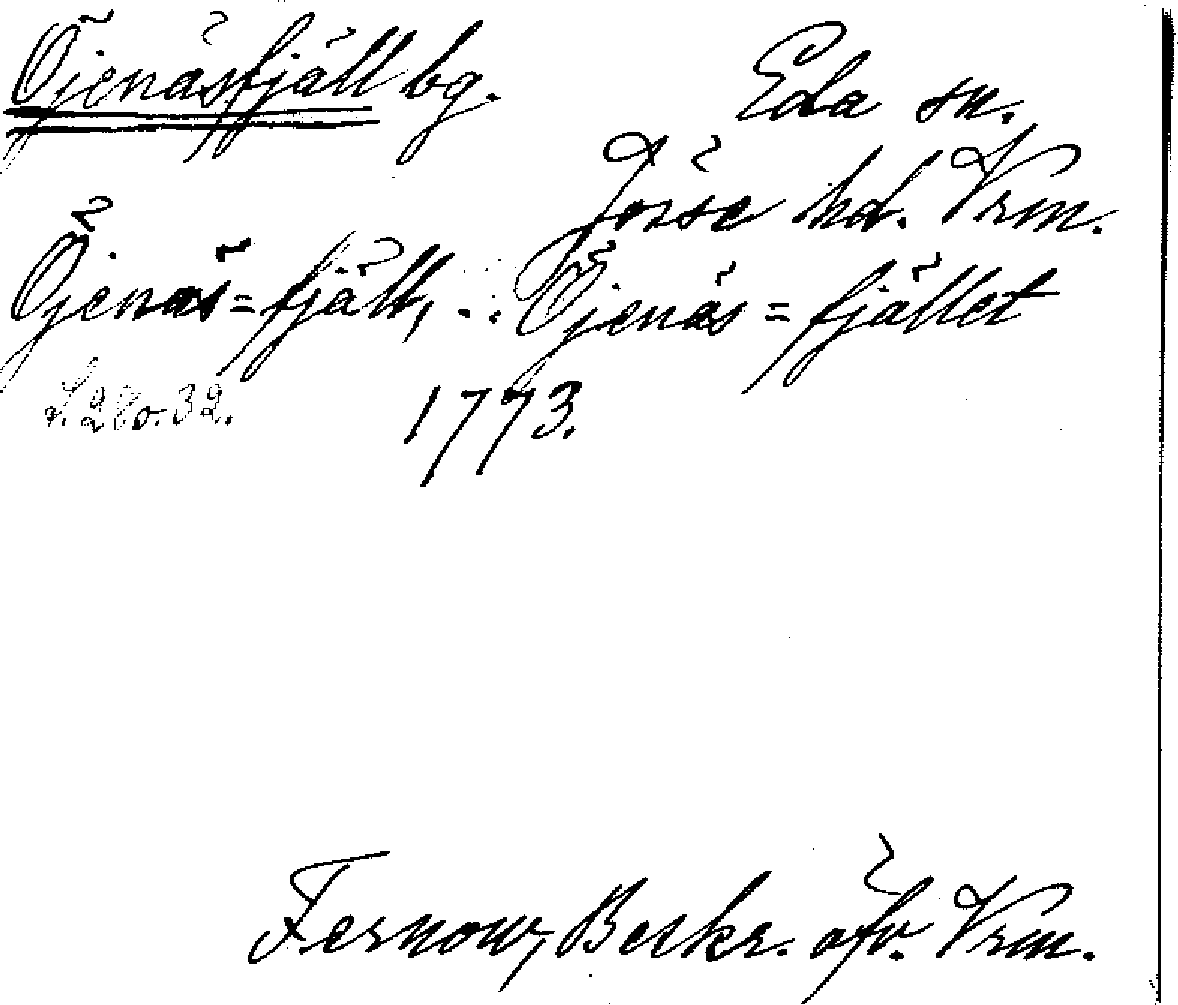 Öjenäsfjäll bg. Eda sn.
Jösse hd. Vrm.
Öjenäs=fjäll, Öjenäs=fjället
S. 280. 32. 1773.
Fernow, Beskr. öfv. Vrm.